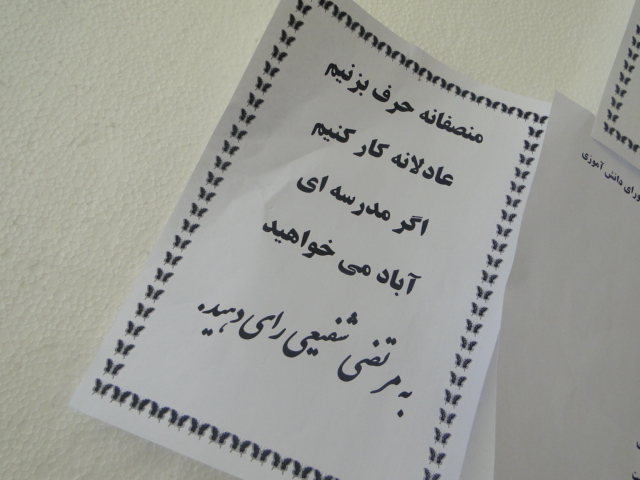 منصفانه حرف بزنیم
عادلانه کار کنیم
اگر مدرسه ای
آباد می خواهید
به مرتضی شفیعی رای دهید.
ورای دانش آموزی